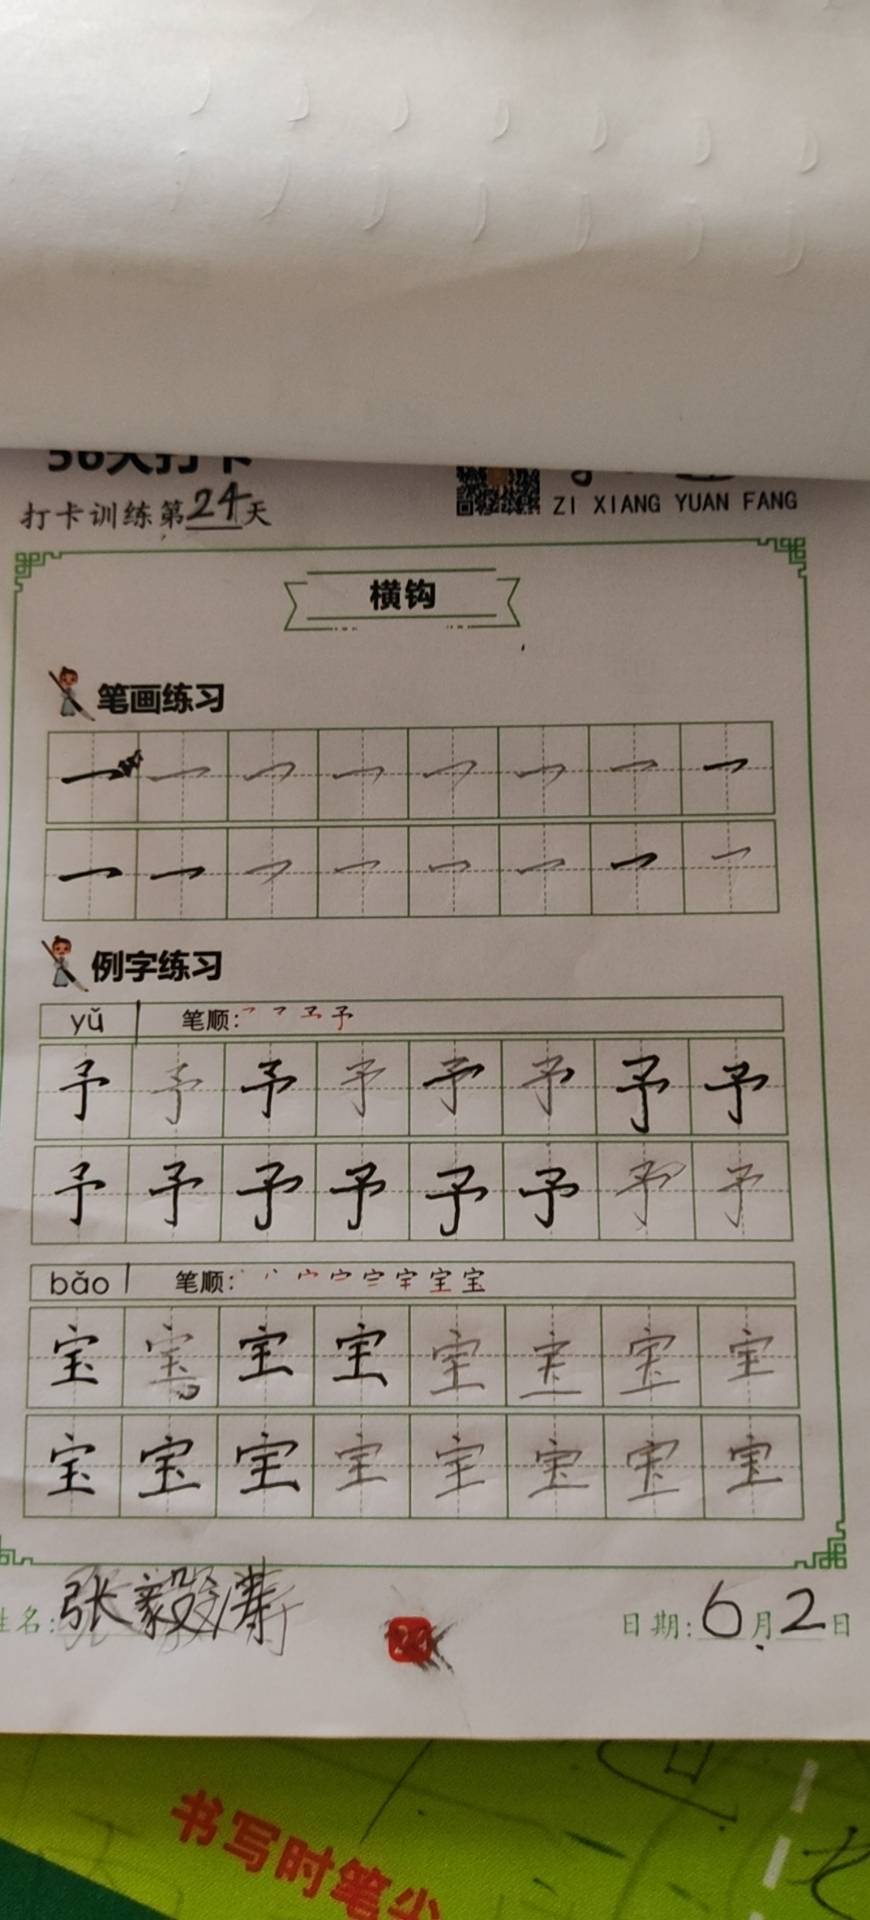 打卡训练第24天
ZI XIANG YUAN FANG
横钩
笔画练习
例字练习
yǔ 笔顺:
予 予 予 予 予 予 予 予
予 予 予 予 予 予 予 予
bǎo 笔顺:
宝 宝 宝 宝 宝 宝 宝 宝
宝 宝 宝 宝 宝 宝 宝 宝
姓名:张毅涛 24 日期:6月2日
书写时笔尖